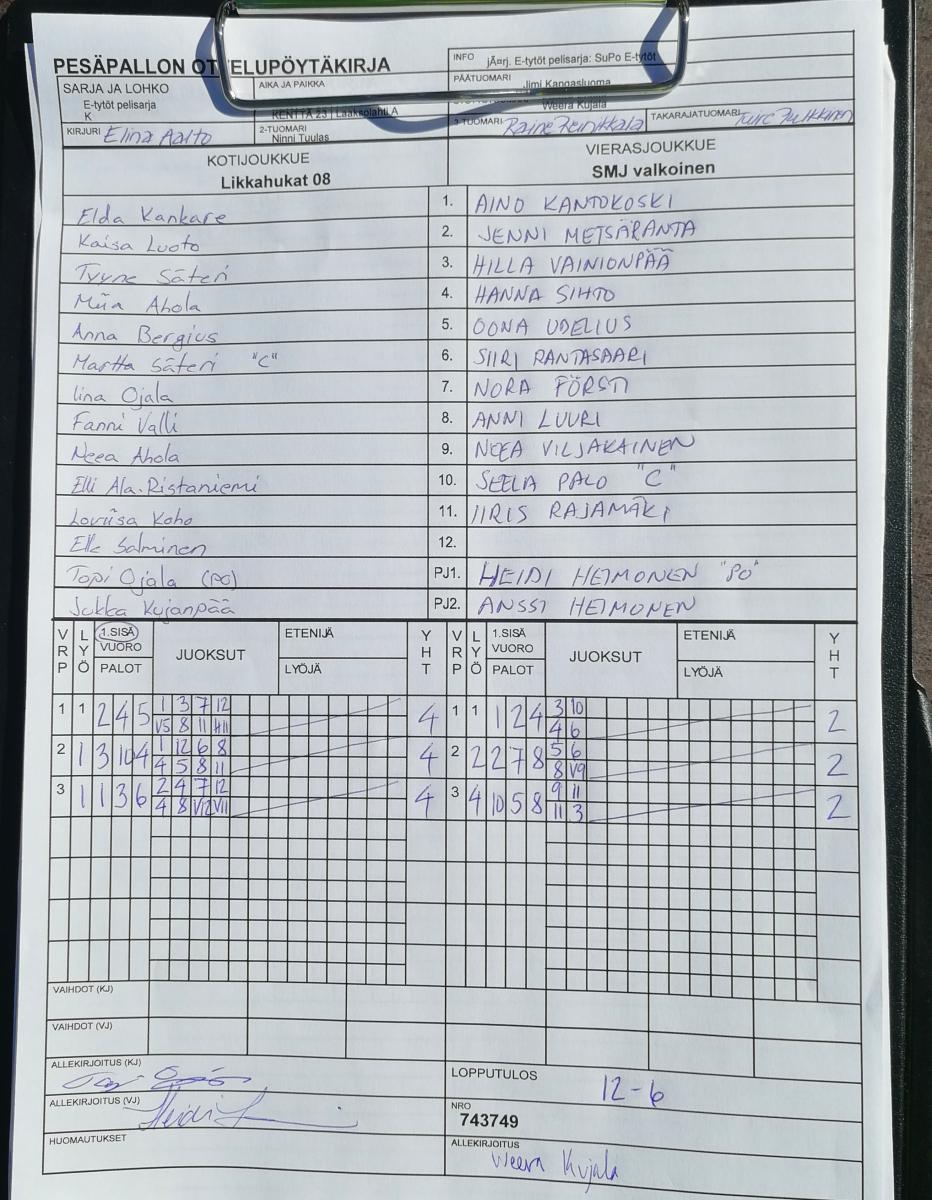 PESÄPALLON OT ELUPÖYTÄKIRJA
INFO jÃ¤rj. E-tytöt pelisarja: SuPo E-tytöt
SARJA JA LOHKO
E-tytöt pelisarja
K
AIKA JA PAIKKA
KENTTÄ 23 | Laaksolahti A
PÄÄTUOMARI
Jimi Kangasluoma
Weera Kujala
KIRJURI Elina Aalto
2-TUOMARI
Ninni Tuulas
3-TUOMARI
TAKARAJATUOMARI
KOTIJOUKKUE
Likkahukat 08
VIERASJOUKKUE
SMJ valkoinen
Elda Kankare 1. AINO KANTOKOSKI
Kaisa Luoto 2. JENNI METSÄRANTA
Tyyne Säteri 3. HILLA VAINIONPÄÄ
Miia Ahola 4. HANNA SIHTO
Anna Bergius 5. OONA UDELIUS
Martta Säteri "C" 6. SIIRI RANTASAARI
Iina Ojala 7. NORA FÖRSTI
Fanni Valli 8. ANNI LUURI
Neea Ahola 9. NEEA VILJAKAINEN
Elli Ala-Ristaniemi 10. SEELA PALO "C"
Loviisa Koho 11. IIRIS RAJAMÄKI
Elle Salminen 12.
Topi Ojala (PO) PJ1. HEIDI HEIMONEN "PÖ"
Jukka Kujanpää PJ2. ANSSI HEIMONEN
VRP LYÖ 1.SISÄ VUORO PALOT JUOKSUT ETENIJÄ LYÖJÄ YHT VRP LYÖ 1.SISÄ VUORO PALOT JUOKSUT ETENIJÄ LYÖJÄ YHT
1 1 2 4 5 1 3 7 12 4 1 1 1 2 4 3 10 2
V5 8 11 4 6
2 1 3 10 4 1 12 6 8 4 2 2 2 7 8 5 6 2
4 5 8 11 8 V9
3 1 1 3 6 2 4 7 12 4 3 4 10 5 8 9 11 2
4 8 V12 V11 11 3
VAIHDOT (KJ)
VAIHDOT (VJ)
ALLEKIRJOITUS (KJ)
ALLEKIRJOITUS (VJ)
HUOMAUTUKSET
LOPPUTULOS 12-6
NRO
743749
ALLEKIRJOITUS
Weera Kujala